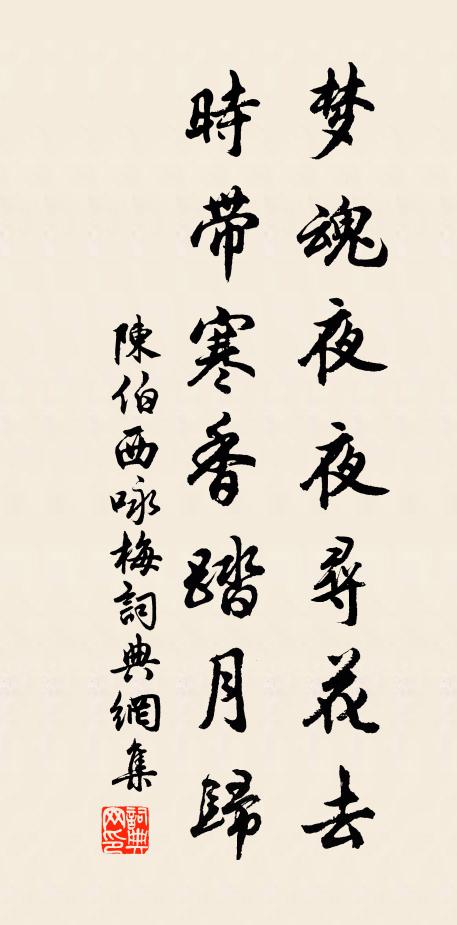 梦魂夜夜尋花去
時带寒香踏月歸
陳伯西咏梅詞典網集
詞典網印